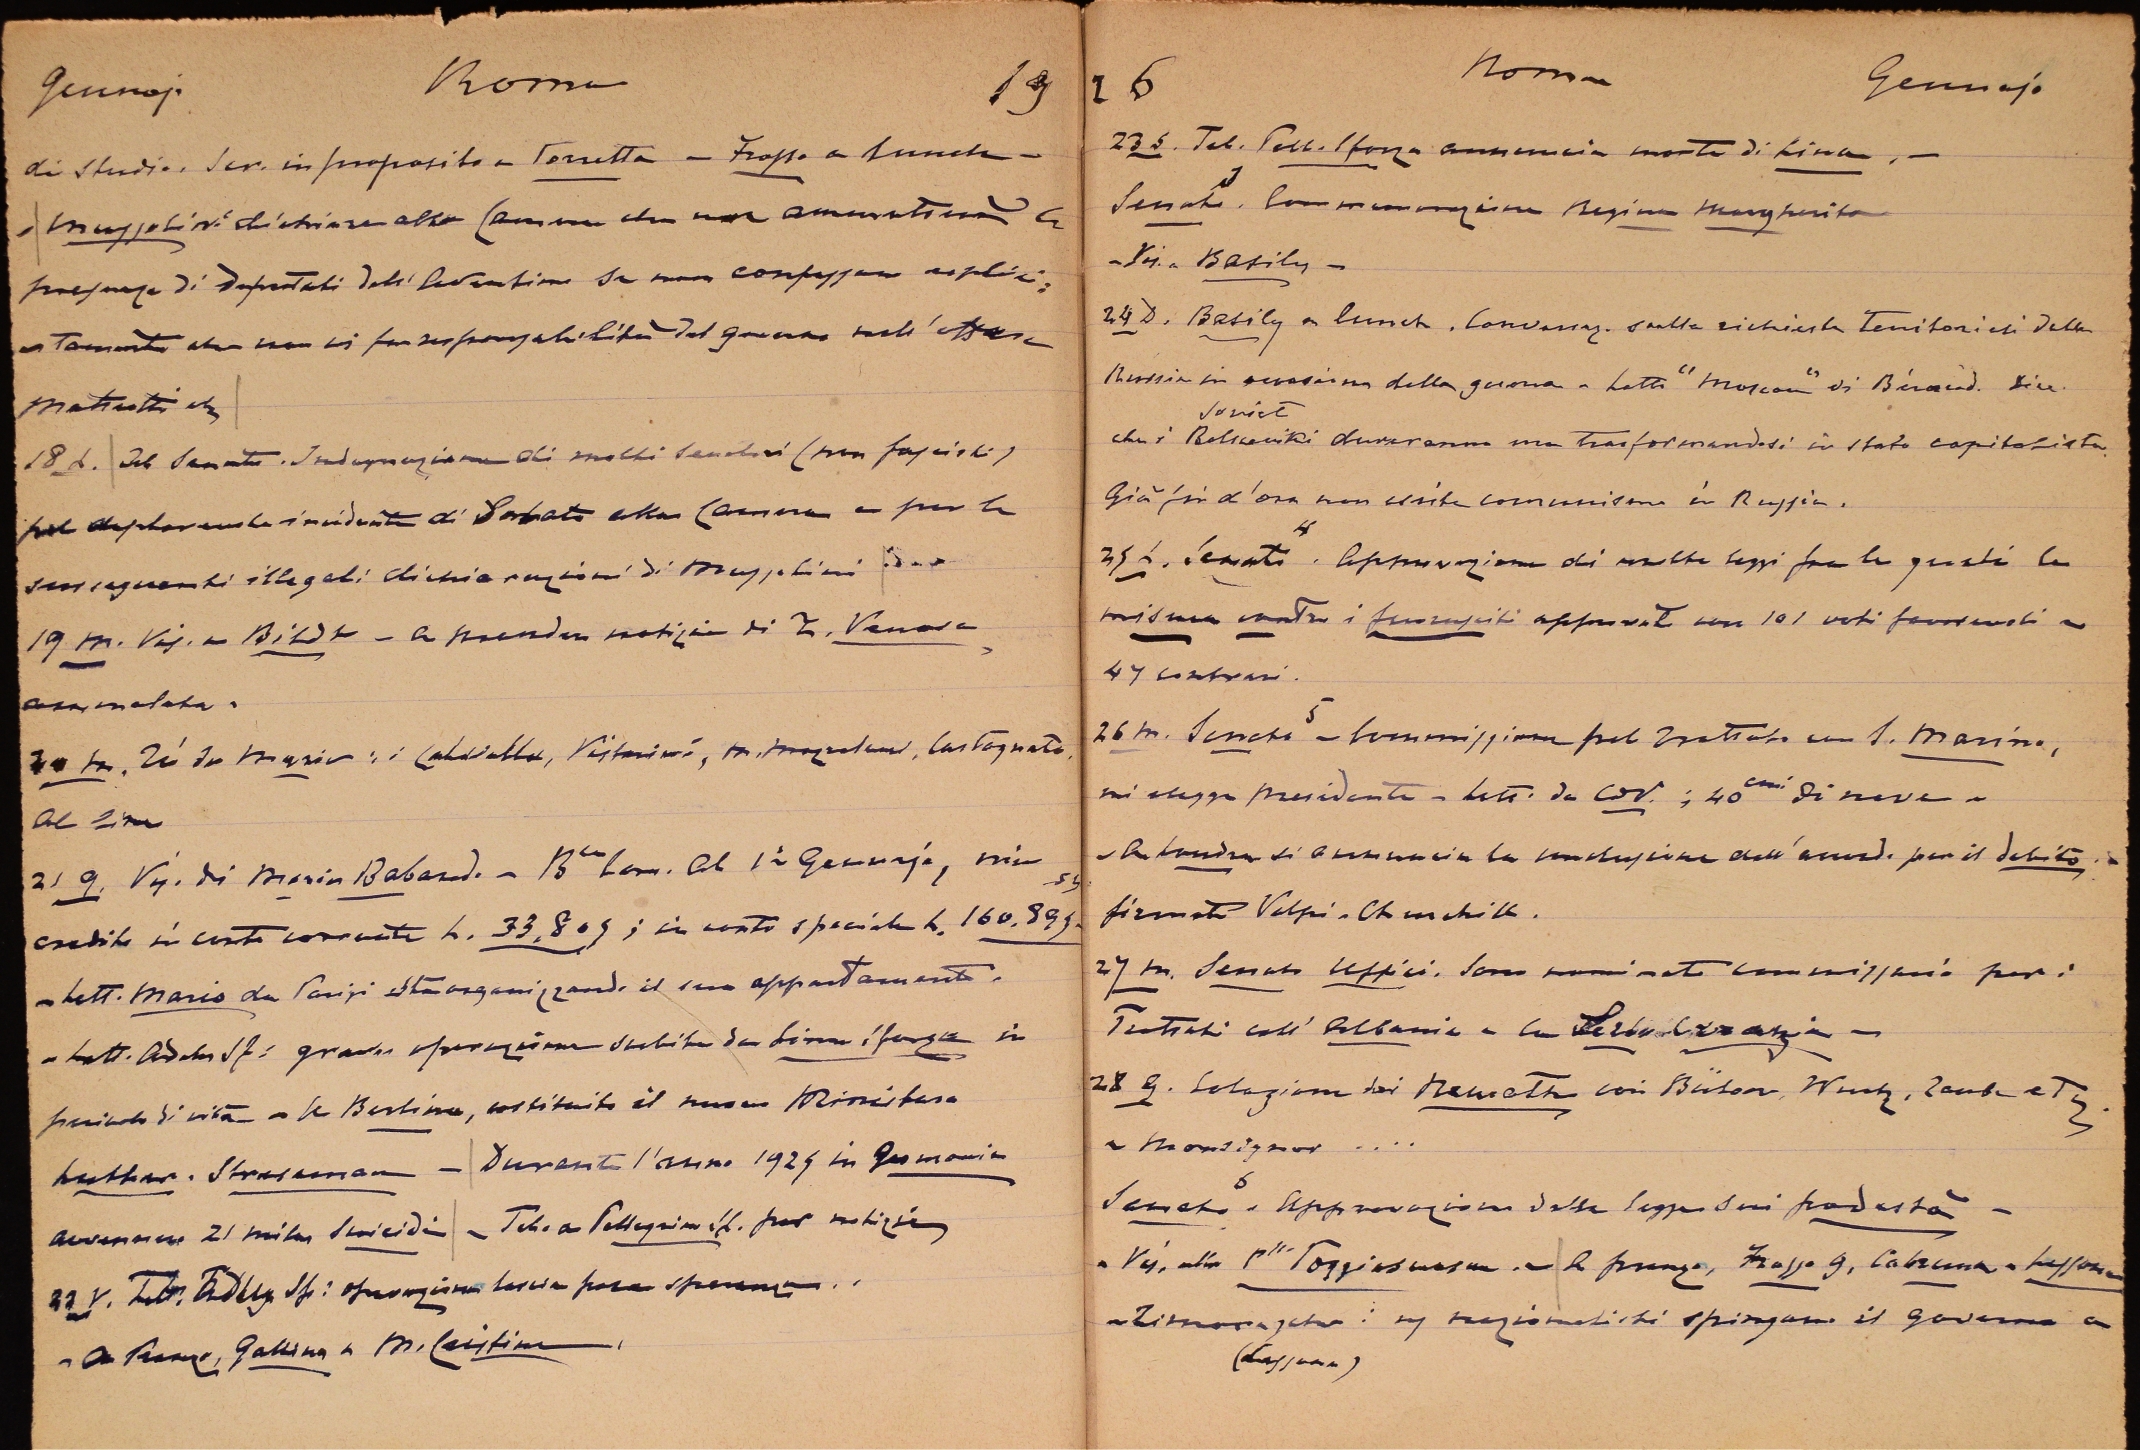 Gennajo Roma 19
di studio. Scr. in proposito a Torretta – Frasso a lunch –
Mussolini dichiara alla Camera che non ammetterà la
presenza di deputati dell'Aventino se non confessano esplici=
tamente che non vi fu responsabilità del governo nell'affare
Matteotti etc
18 L. Al Senato. Indignazione di molti senatori (non fascisti)
pel deplorevole incidente di Sabato alla Camera e per le
conseguenti illegali dichiarazioni di Mussolini
19 M. Vis. a Bildt – a prender notizie di T. Venosa
ammalata.
20 M. Tè da Maria : i Vistarini, Castagneto.
Al
21 G. Vis. di Maria – B Com. Al 1° Gennajo, mio
credito in conto corrente L. 33,805 ; in conto speciale L. 160.895
– Lett. Mario da Parigi sta organizzando il suo appartamento.
– Lett. Adele Sf: grave operazione subita da Lina Sforza in
pericolo di vita – A Berlino, costituito il nuovo Ministero
Luther. Streseman – Durante l'anno 1925 in Germania
avvennero 21 mila suicidi – Tel. a Pellegrina Sf. per notizie
22 V. Sf: operazione lascia poca speranza.
– A Pranzo, Gallina e M. Cristina.
26 Roma Gennajo
23 S. Tel. Pell. Sforza annuncia morte di Lina. –
Senato 3. Commemorazione Regina Margherita
– Vis. a Basily –
24 D. Basily a lunch. Conversaz. sulle richieste territoriali della
Russia in occasione della guerra – Letto "Moscou" di Béraud. Dice
soviet
che i Bolsceviki dureranno ma trasformandosi in stato capitalista.
Già fin d'ora non esiste comunismo in Russia.
25 L. Senato 4. Approvazione di molte leggi fra le quali la
misura contro i fuorusciti approvata con 101 voti favorevoli e
47 contrari.
26 M. Senato 5 – Commissione pel Trattato con S. Marino,
mi elegge Presidente – Lett. da ; 40 cmi di neve –
– A Londra si annuncia la conclusione dell'accordo per il debito,
firmato Volpi – Churchill.
27 M. Senato Uffici. Sono nominato commissario per i
Trattati coll' Albania e la
28 G. Colazione dai con Bülow, Wurts,
e Monsignor ....
Senato 6. Approvazione della legge sui podestà –
– Vis. alla Pssa Poggiosuasa. – A pranzo, Frasso G, e Lessona
: nazionalisti spingono il governo a
(Lessona)